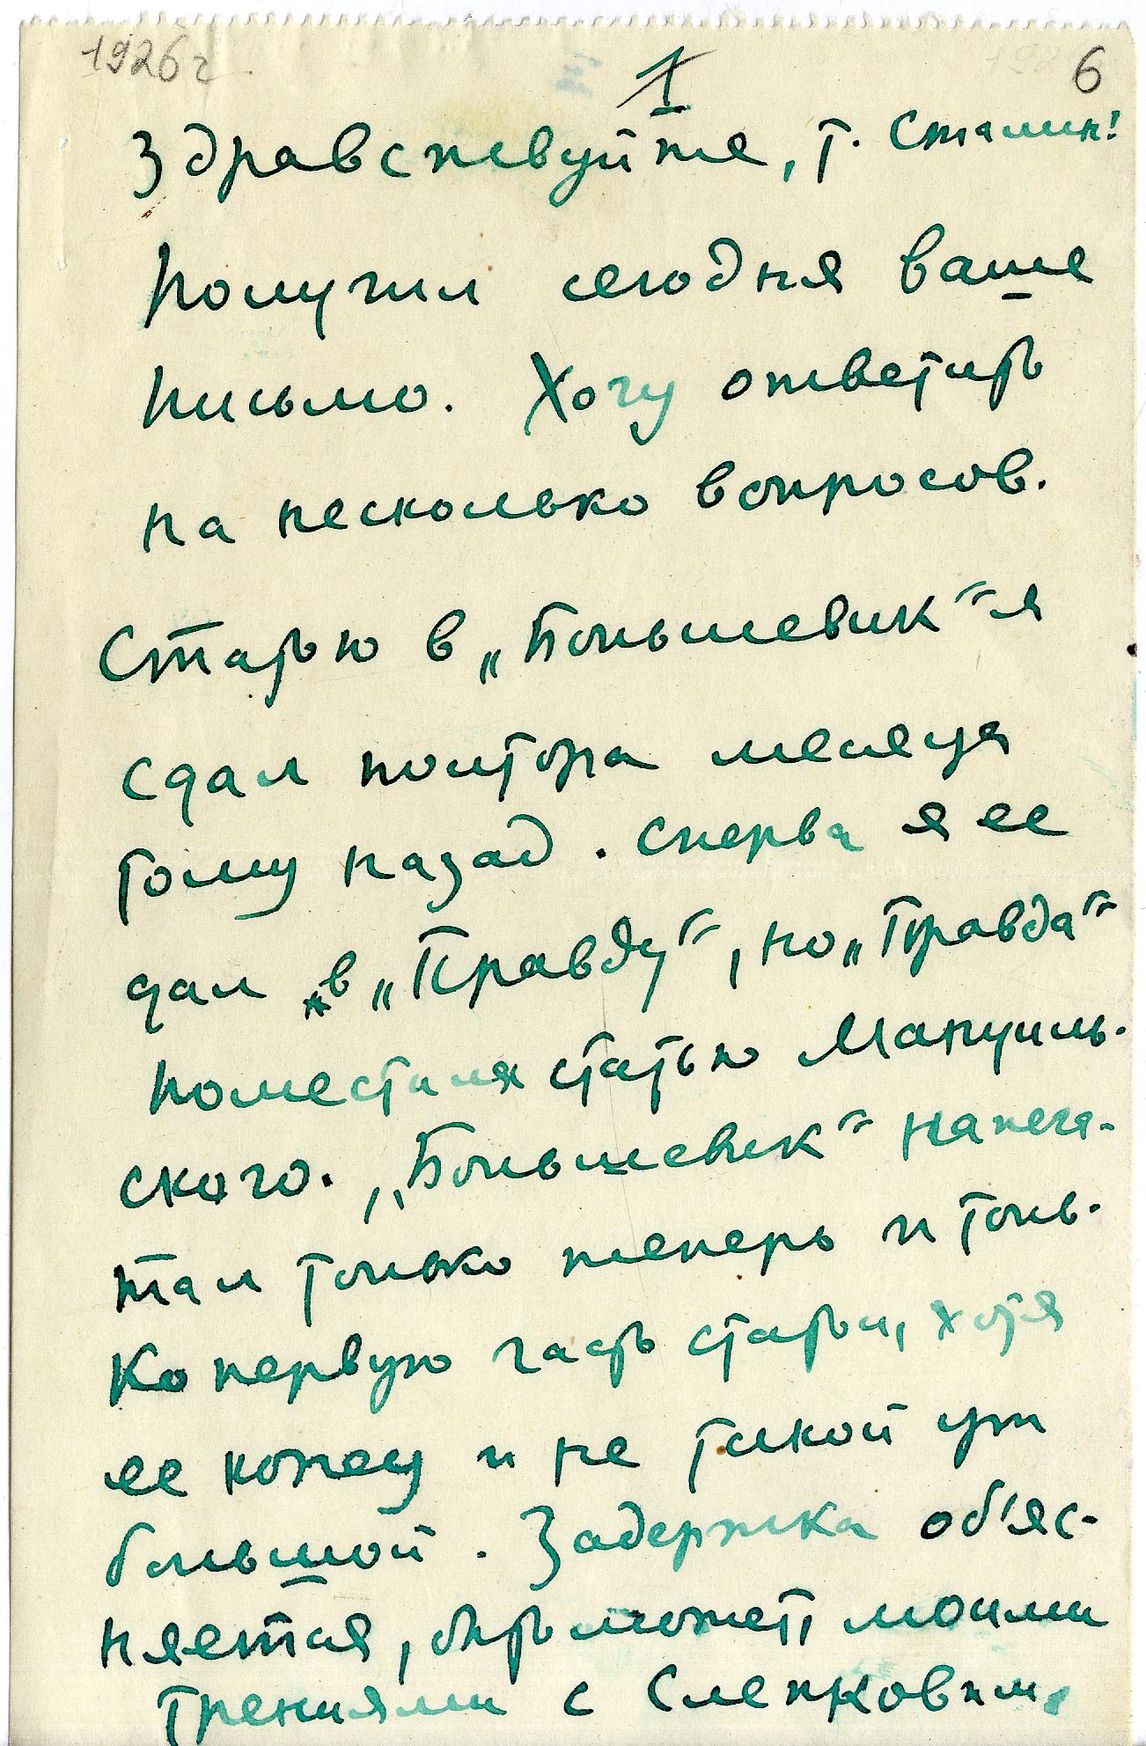 1926 г
6
1
Здравствуйте, т. Сталин!
Получил сегодня ваше
письмо. Хочу ответить
на несколько вопросов.
Статью в „Большевик“ я
сдал полтора месяца
тому назад. Сперва я ее
дал в „Правду“, но „Правда“
поместила статью Мануиль-
ского. „Большевик“ напеча-
тал только теперь и толь-
ко первую часть статьи, хотя
ее конец и не такой уж
большой. Задержка об'яс-
няется, быть может, моими
трениями с Слепковым.